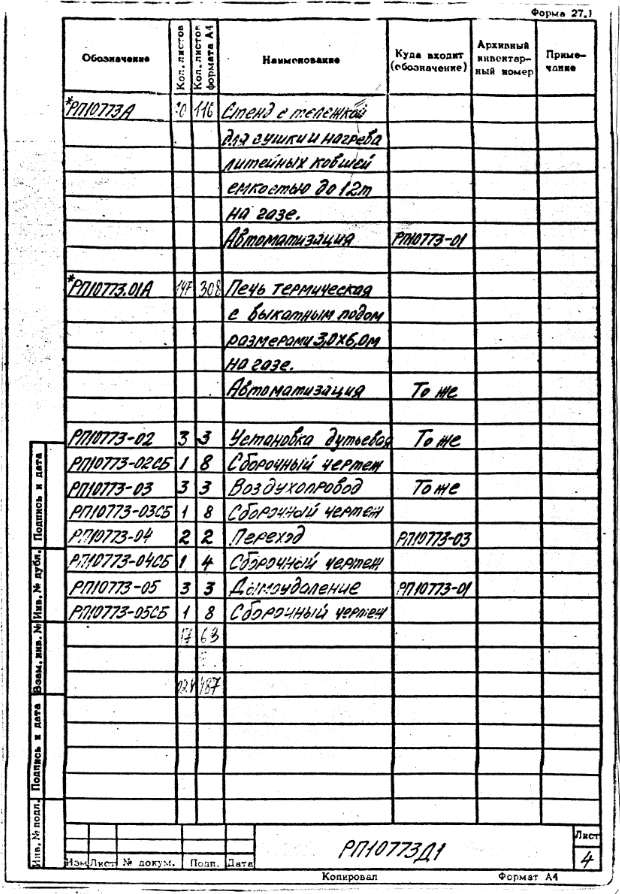 Форма 27.1
Обозначение Кол. листов Кол. листов формата А4 Наименование Куда входит (обозначение) Архивный инвентарный номер Примечание
*РП10773А 116 Стенд с тележкой
для сушки и нагрева
литейных ковшей
емкостью до 12т
на газе.
Автоматизация РП10773-01
*РП10773.01А 147 308 Печь термическая
с выкатным подом
размерами 3,0х6,0м
на газе.
Автоматизация То же
РП10773-02 3 3 Установка дутьевая То же
РП10773-02СБ 1 8 Сборочный чертеж
РП10773-03 3 3 Воздухопровод То же
РП10773-03СБ 1 8 Сборочный чертеж
РП10773-04 2 2 Переход РП10773-03
РП10773-04СБ 1 4 Сборочный чертеж
РП10773-05 3 3 Дымоудаление РП10773-01
РП10773-05СБ 1 8 Сборочный чертеж
17 63
487
Инв. № подл. Подпись и дата Взам. инв. № Инв. № дубл. Подпись и дата
РП10773Д1
Лист
4
Изм Лист № докум. Подп. Дата
Копировал Формат А4